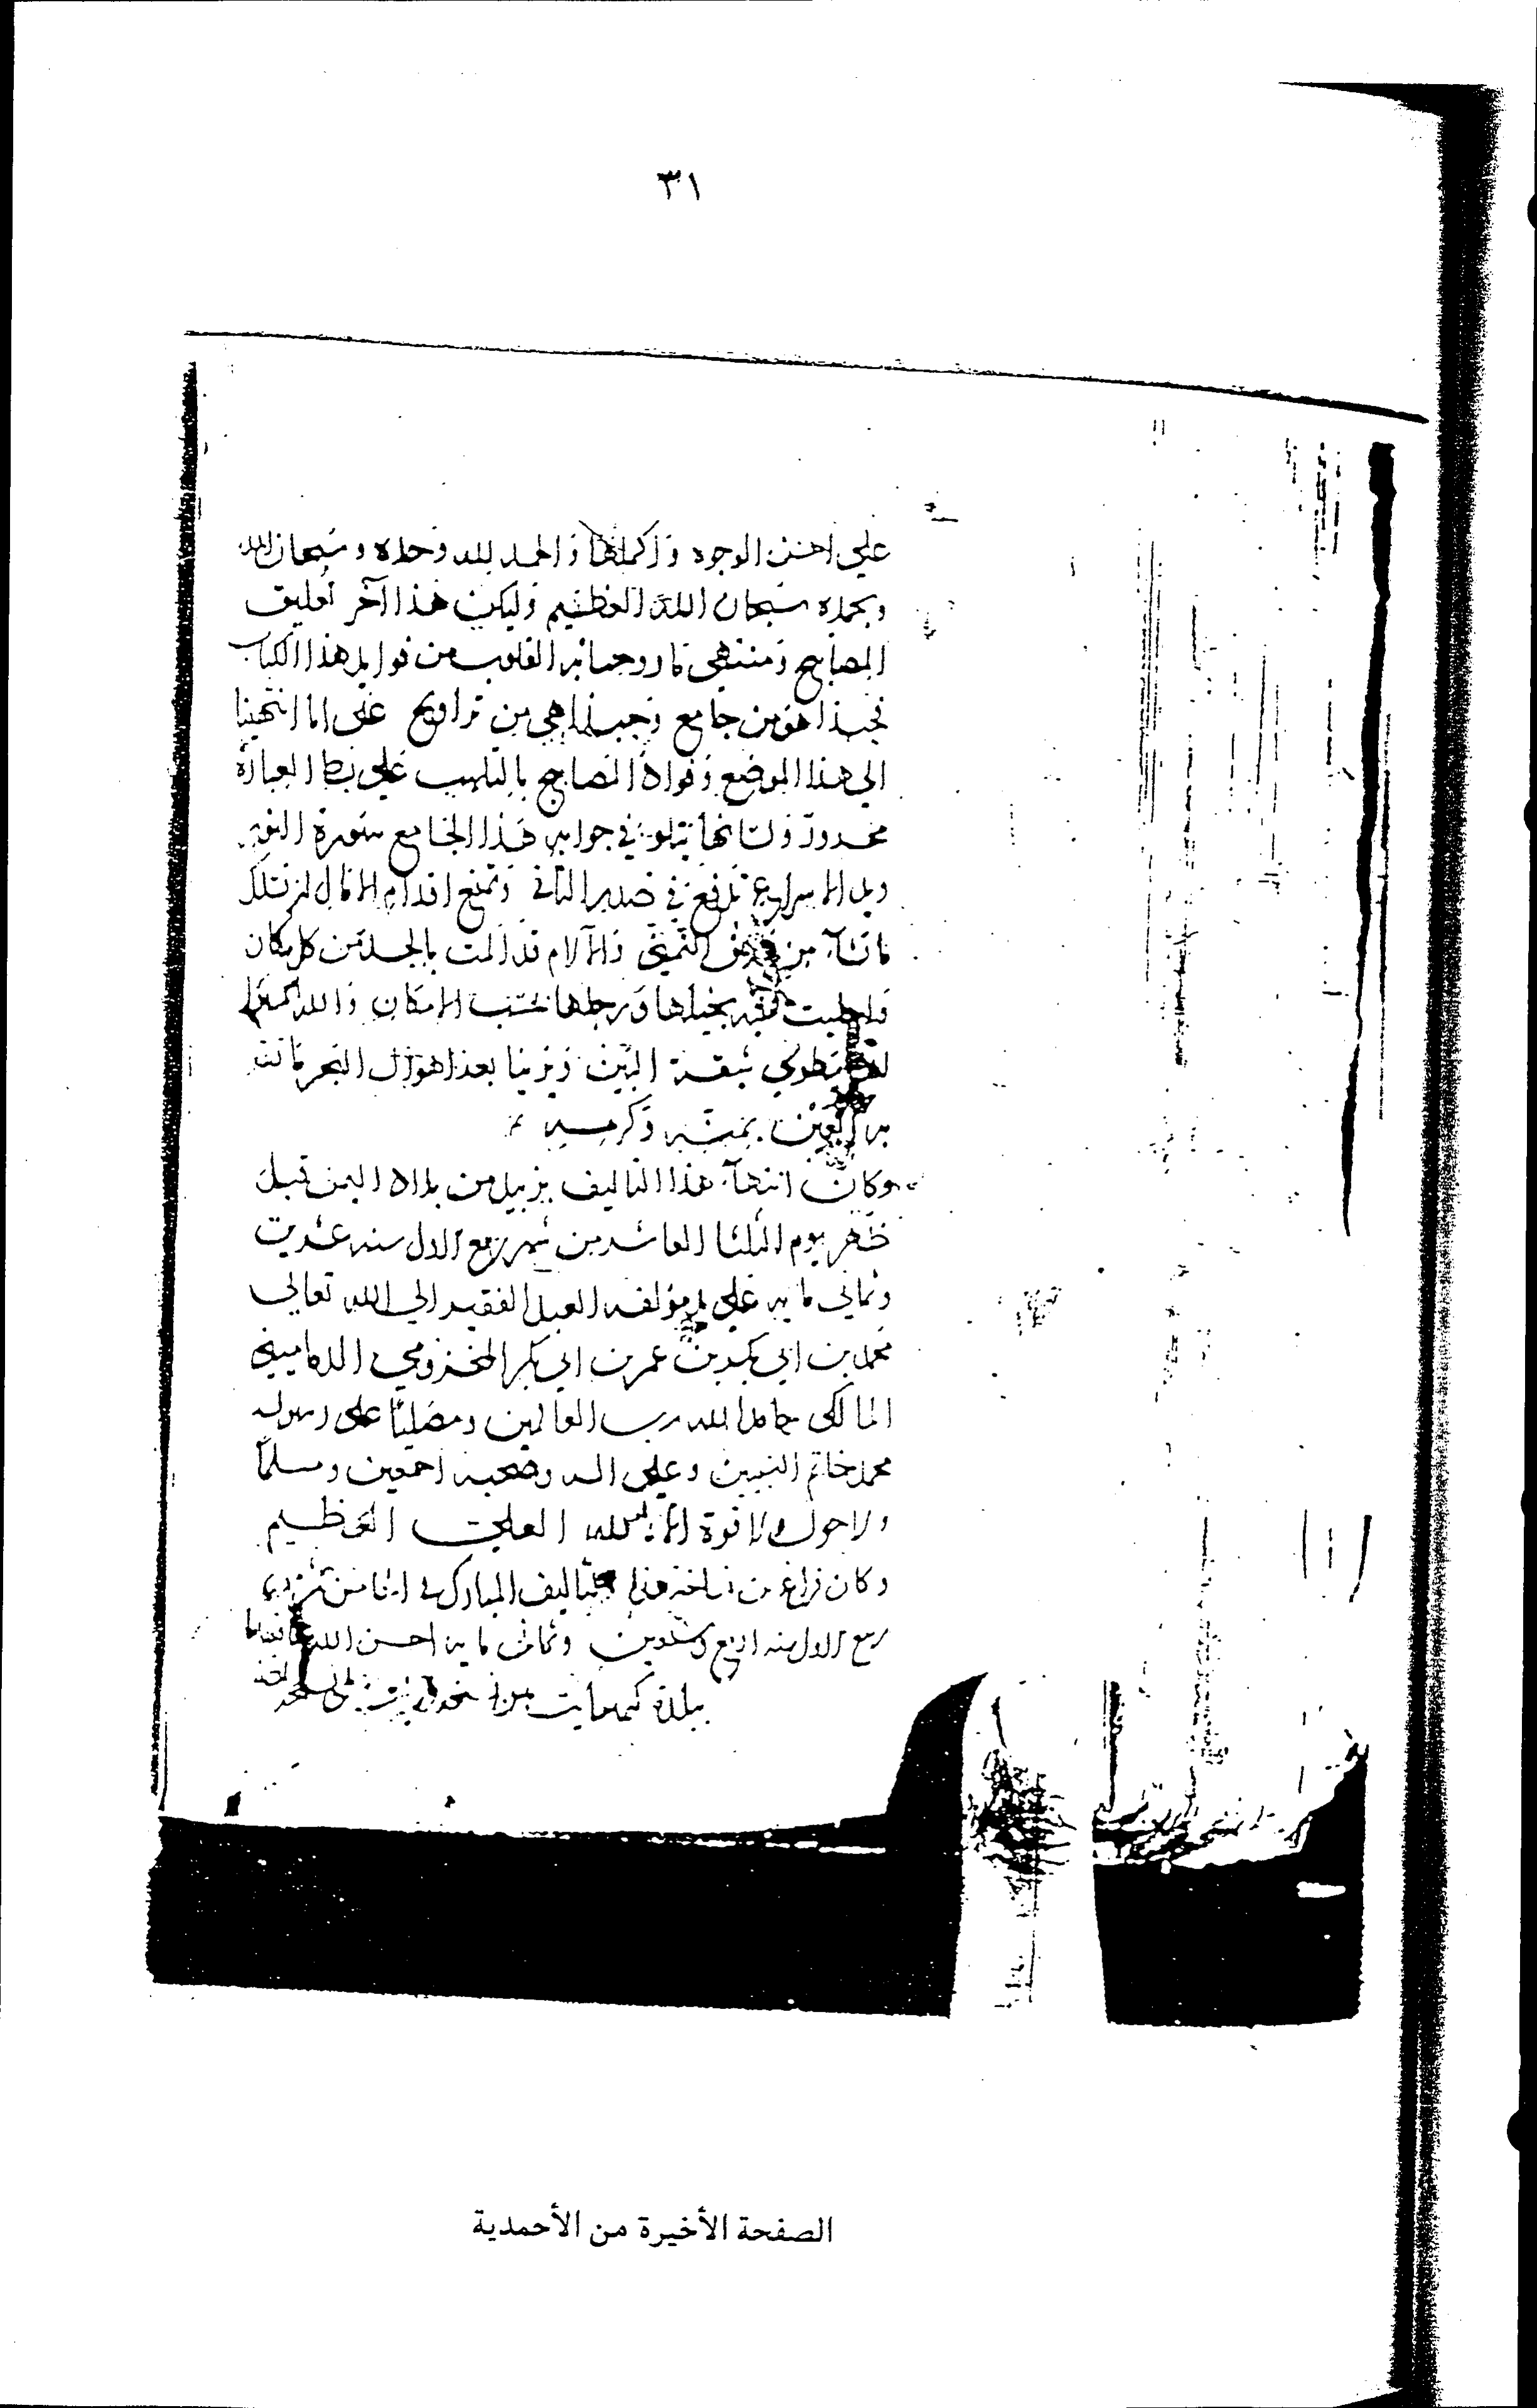 ٣١
علي احسن الوجوه و اكملها و الحمد لله وحده و سبحان الله
وبحمده سبحان الله العظيم وليكن هذا آخر تعليق
المصابيح ومنتهى ما روحنا به القلوب من فوايد هذا الكتاب
فحبذا هو من جامع وحبذا هي من تراويح على انا انتهينا
الي هذا الموضع وفواد المصابيح بالتلهب على بط العبارة
محدود ولسانها يتلو في جوانب هذا الجامع سورة النور
ويد الاسراع تدفع في صدر التاني وتمنع اقدام الاقال ان تسلك
ما تشآء من التمني والآلام قد المت بالجسد من كل مكان
واجلبت عليه بخيلها ورجلها بحسب الامكان والله
تطوى شقة البين وبرينا بعد اهوال البحر ما تقر
به العين بمنه وكرمه
وكان انتهآء هذا التاليف بزبيد من بلاد اليمن قبيل
ظهر يوم الثلثا العاشر من شهر ربيع الاول سنه عشرين
وثماني مايه على يد مؤلفه العبد الفقير الي الله تعالى
محمد بن ابي بكر بن عمر بن ابي بكر المخزومي الدماميني
المالكى حامدا لله رب العالمين ومصليًا على رسوله
محمد خاتم النبيين وعلى اله وصحبه اجمعين ومسلمًا
ولا حول ولا قوة الا بالله العلي العظيم
وكان فراغ من نساخة هذا التاليف المبارك في الثامن من شهر
ربيع الاول سنه اربع وعشرين وثمان مايه احسن الله عاقبتها
ببلدة كنبايت من نسخة
الصفحة الأخيرة من الأحمدية